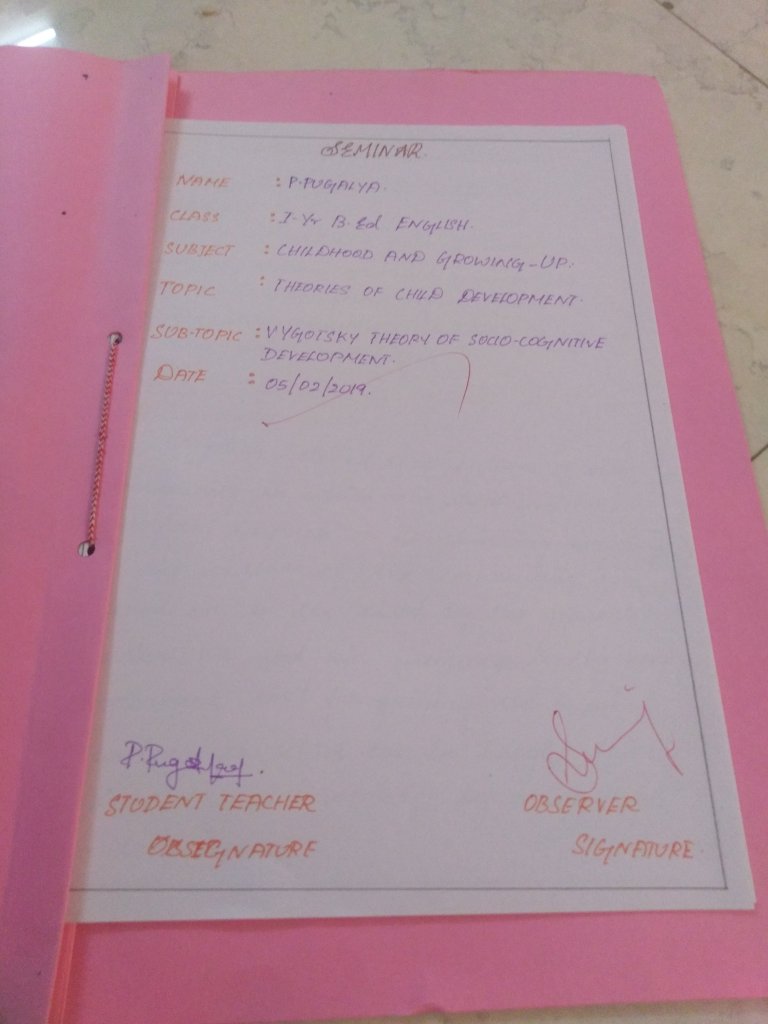 SEMINAR.
NAME : P.PUGALYA.
CLASS : I-Yr B.Ed ENGLISH.
SUBJECT : CHILDHOOD AND GROWING-UP.
TOPIC : THEORIES OF CHILD DEVELOPMENT.
SUB-TOPIC : VYGOTSKY THEORY OF SOCIO-COGNITIVE
DEVELOPMENT.
DATE : 05/02/2019.
STUDENT TEACHER OBSERVER
SIGNATURE.